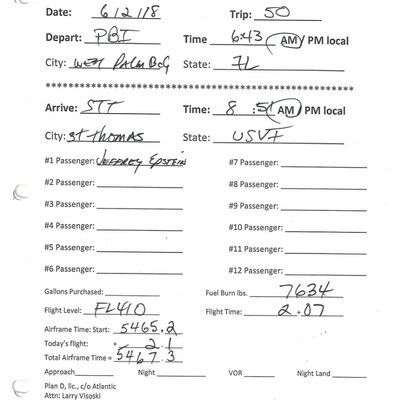 Date: 6/2/18 Trip: 50
Depart: PBI Time 6:43 AM PM local
City: West Palm Bch State: FL
************************************************
Arrive: STT Time: 8:51 AM/ PM local
City: St Thomas State: USVI
#1 Passenger: Jeffrey Epstein #7 Passenger:
#2 Passenger: #8 Passenger:
#3 Passenger: #9 Passenger:
#4 Passenger: #10 Passenger:
#5 Passenger: #11 Passenger:
#6 Passenger: #12 Passenger:
Gallons Purchased: Fuel Burn lbs. 7634
Flight Level: FL410 Flight Time: 2+07
Airframe Time: Start: 5465.2
Today's flight: + 2.1
Total Airframe Time = 5467.3
Approach Night VOR Night Land
Plan D, llc., c/o Atlantic
Attn: Larry Visoski